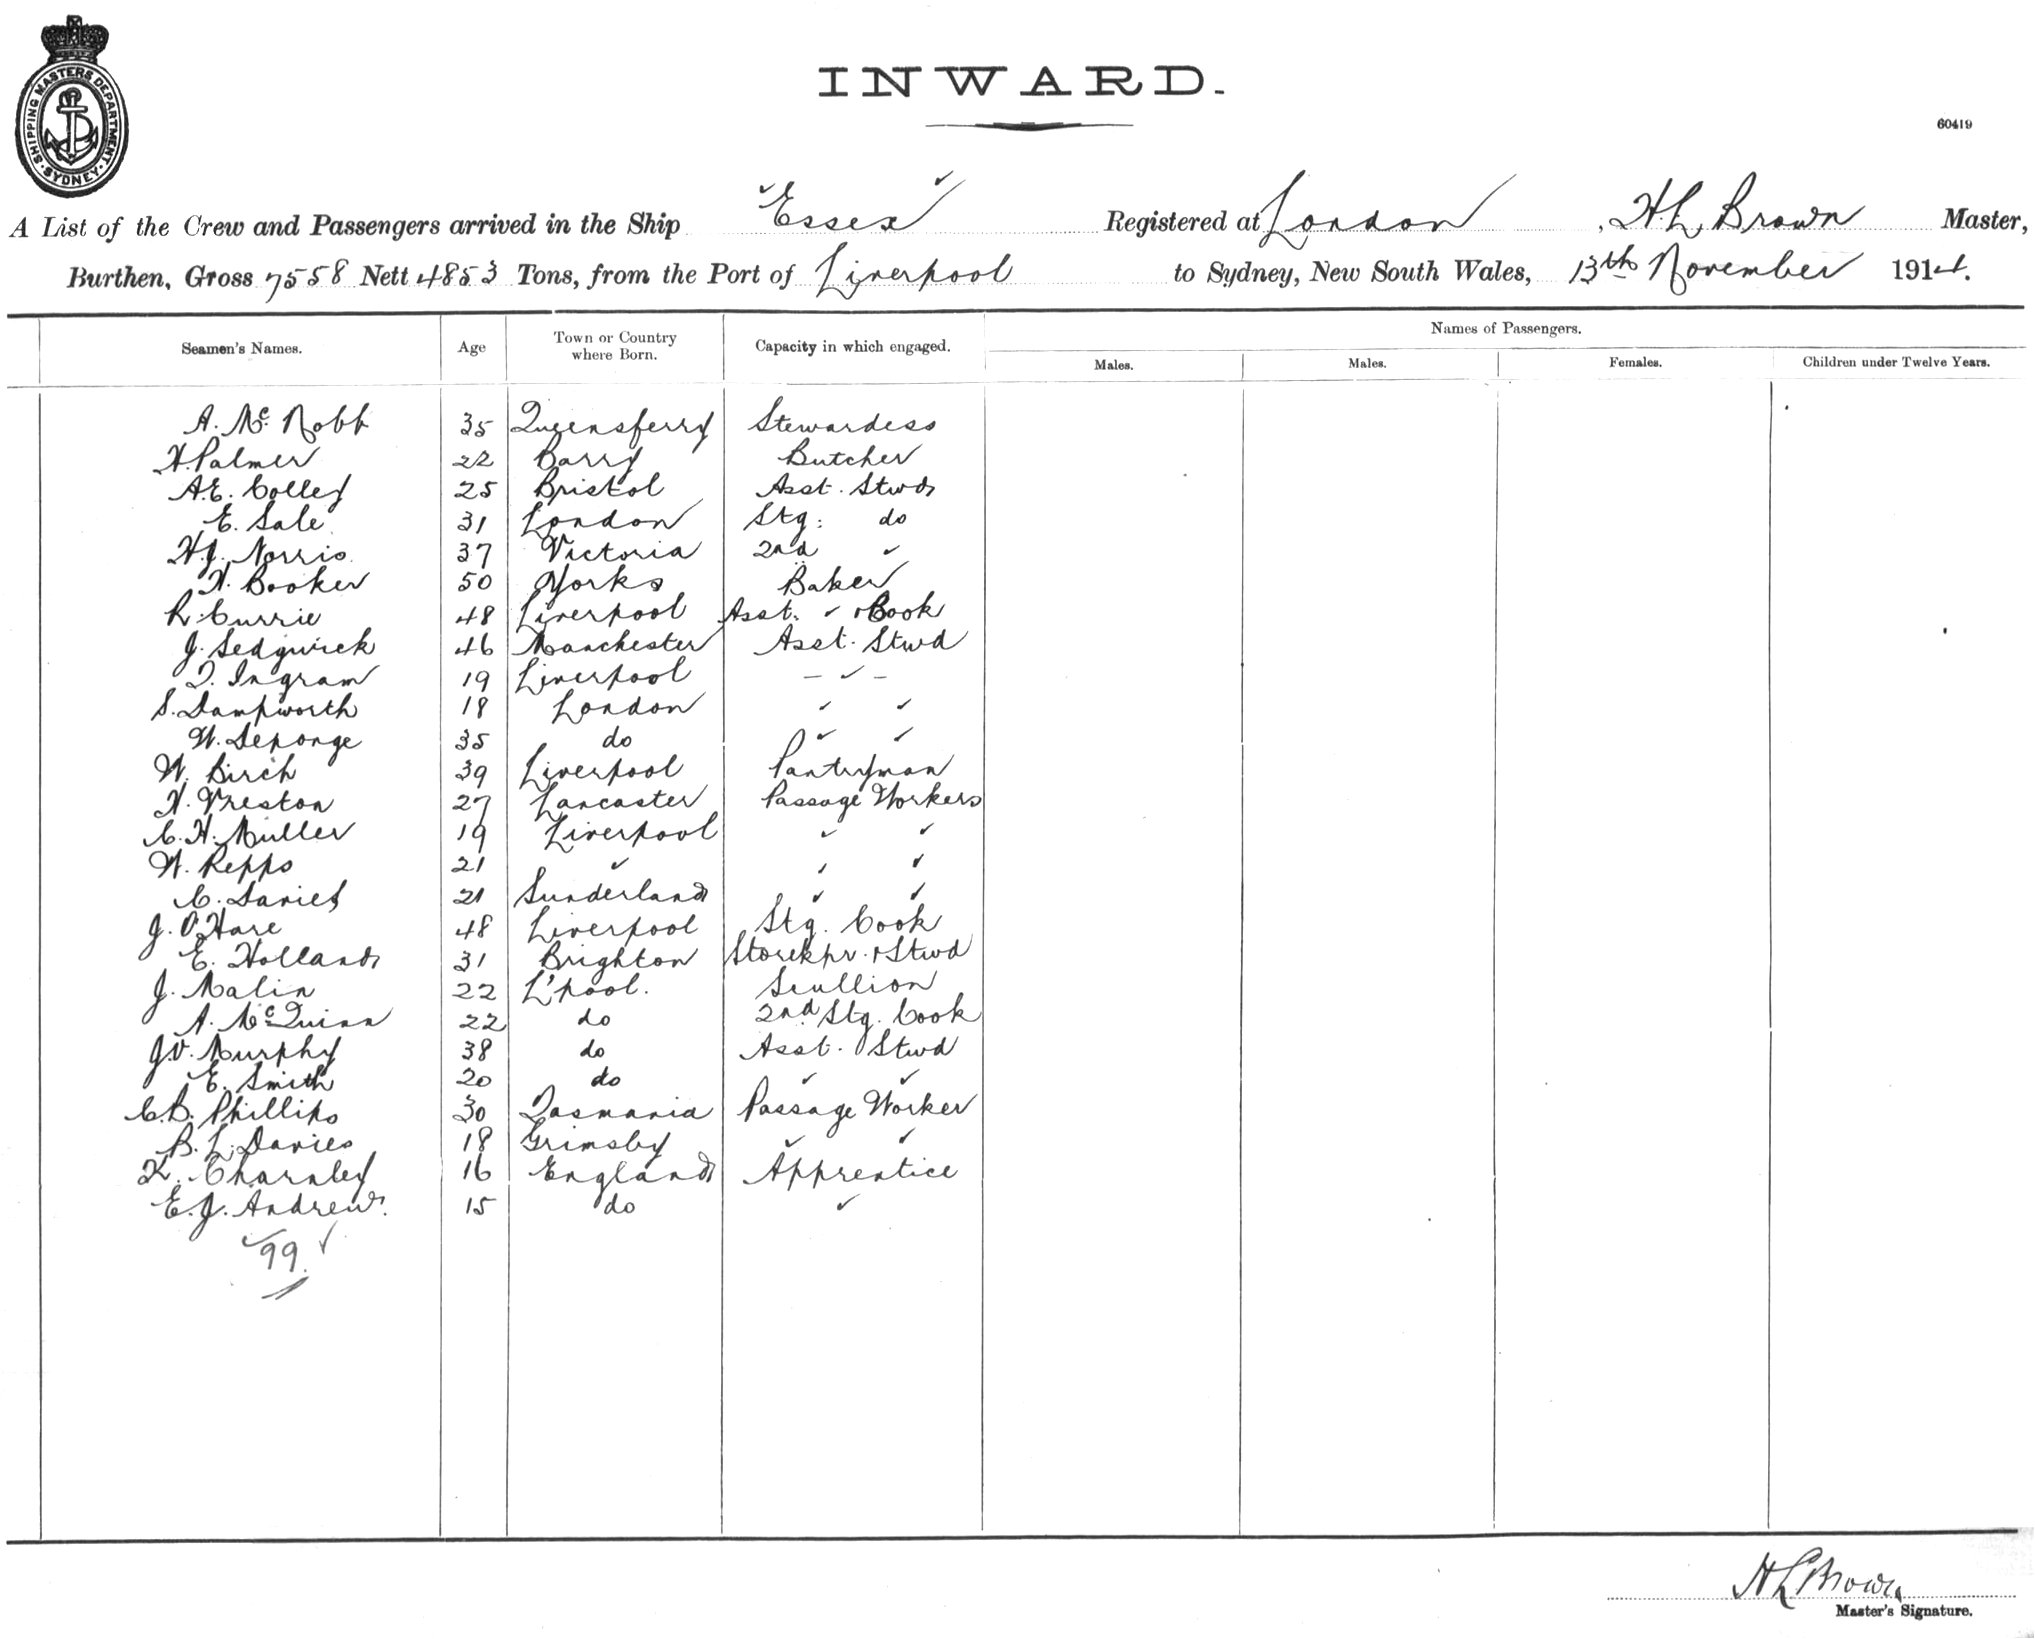 SHIPPING MASTERS DEPARTMENT · SYDNEY ·
INWARD.
60419
A List of the Crew and Passengers arrived in the Ship "Essex" Registered at London, H L Brown Master,
Burthen, Gross 7558 Nett 4853 Tons, from the Port of Liverpool to Sydney, New South Wales, 13th November 1914.
Seamen's Names. Age Town or Country where Born. Capacity in which engaged. Names of Passengers.
Males. Males. Females. Children under Twelve Years.
A. Mc Robb 35 Queensferry Stewardess
H. Palmer 22 Barry Butcher
A.E. Colley 25 Bristol Asst. Stwd
E. Sale 31 London Stg: do
H.J. Norris 37 Victoria 2nd ✓
H. Booker 50 Yorks Baker
R. Currie 48 Liverpool Asst. ✓ + Cook
J. Sedgwick 46 Manchester Asst. Stwd
T. Ingram 19 Liverpool – ✓ –
S. Dampworth 18 London ✓ ✓
W. 35 do ✓ ✓
W. Birch 39 Liverpool Pantryman
H. Preston 27 Lancaster Passage Workers
C. H. Muller 19 Liverpool ✓ ✓
W. Repps 21 ✓ ✓ ✓
C. Davies 21 Sunderland ✓ ✓
J. O'Hare 48 Liverpool Stg. Cook
E. Holland 31 Brighton Storekpr. + Stwd
J. Malin 22 L'pool. Scullion
A. McQuinn 22 do 2nd Stg. Cook
J.V. Murphy 38 do Asst. Stwd
E. Smith 20 do ✓ ✓
C.B. Phillips 30 Tasmania Passage Worker
B. L. Davies 18 Grimsby ✓ ✓
K. Charnley 16 England Apprentice
E. J. Andrew. 15 do ✓
✓ 99. ✓
H L Brown
Master's Signature.